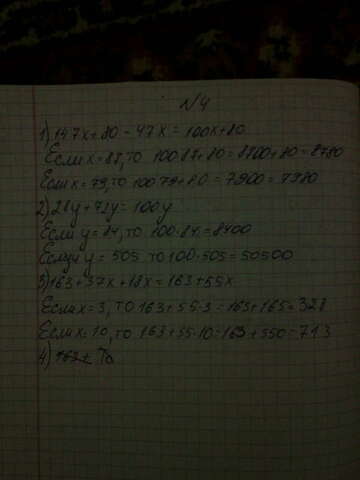 №4
1) 147x = 80 - 47x = 100x+80
Если x = 87, то 100·87+80 = 8700+80 = 8780
Если x = 79, то 100·79+80 = 7900 = 7980
2) 28y + 72y = 100y
Если y = 84, то 100·84 = 8400
Если y = 505 то 100·505 = 50500
3) 163+37x+18x = 163+55x
Если x = 3, то 163+55·3 = 163+165 = 328
Если x = 10, то 163+55·10 = 163+550 = 713
4) 163+ То